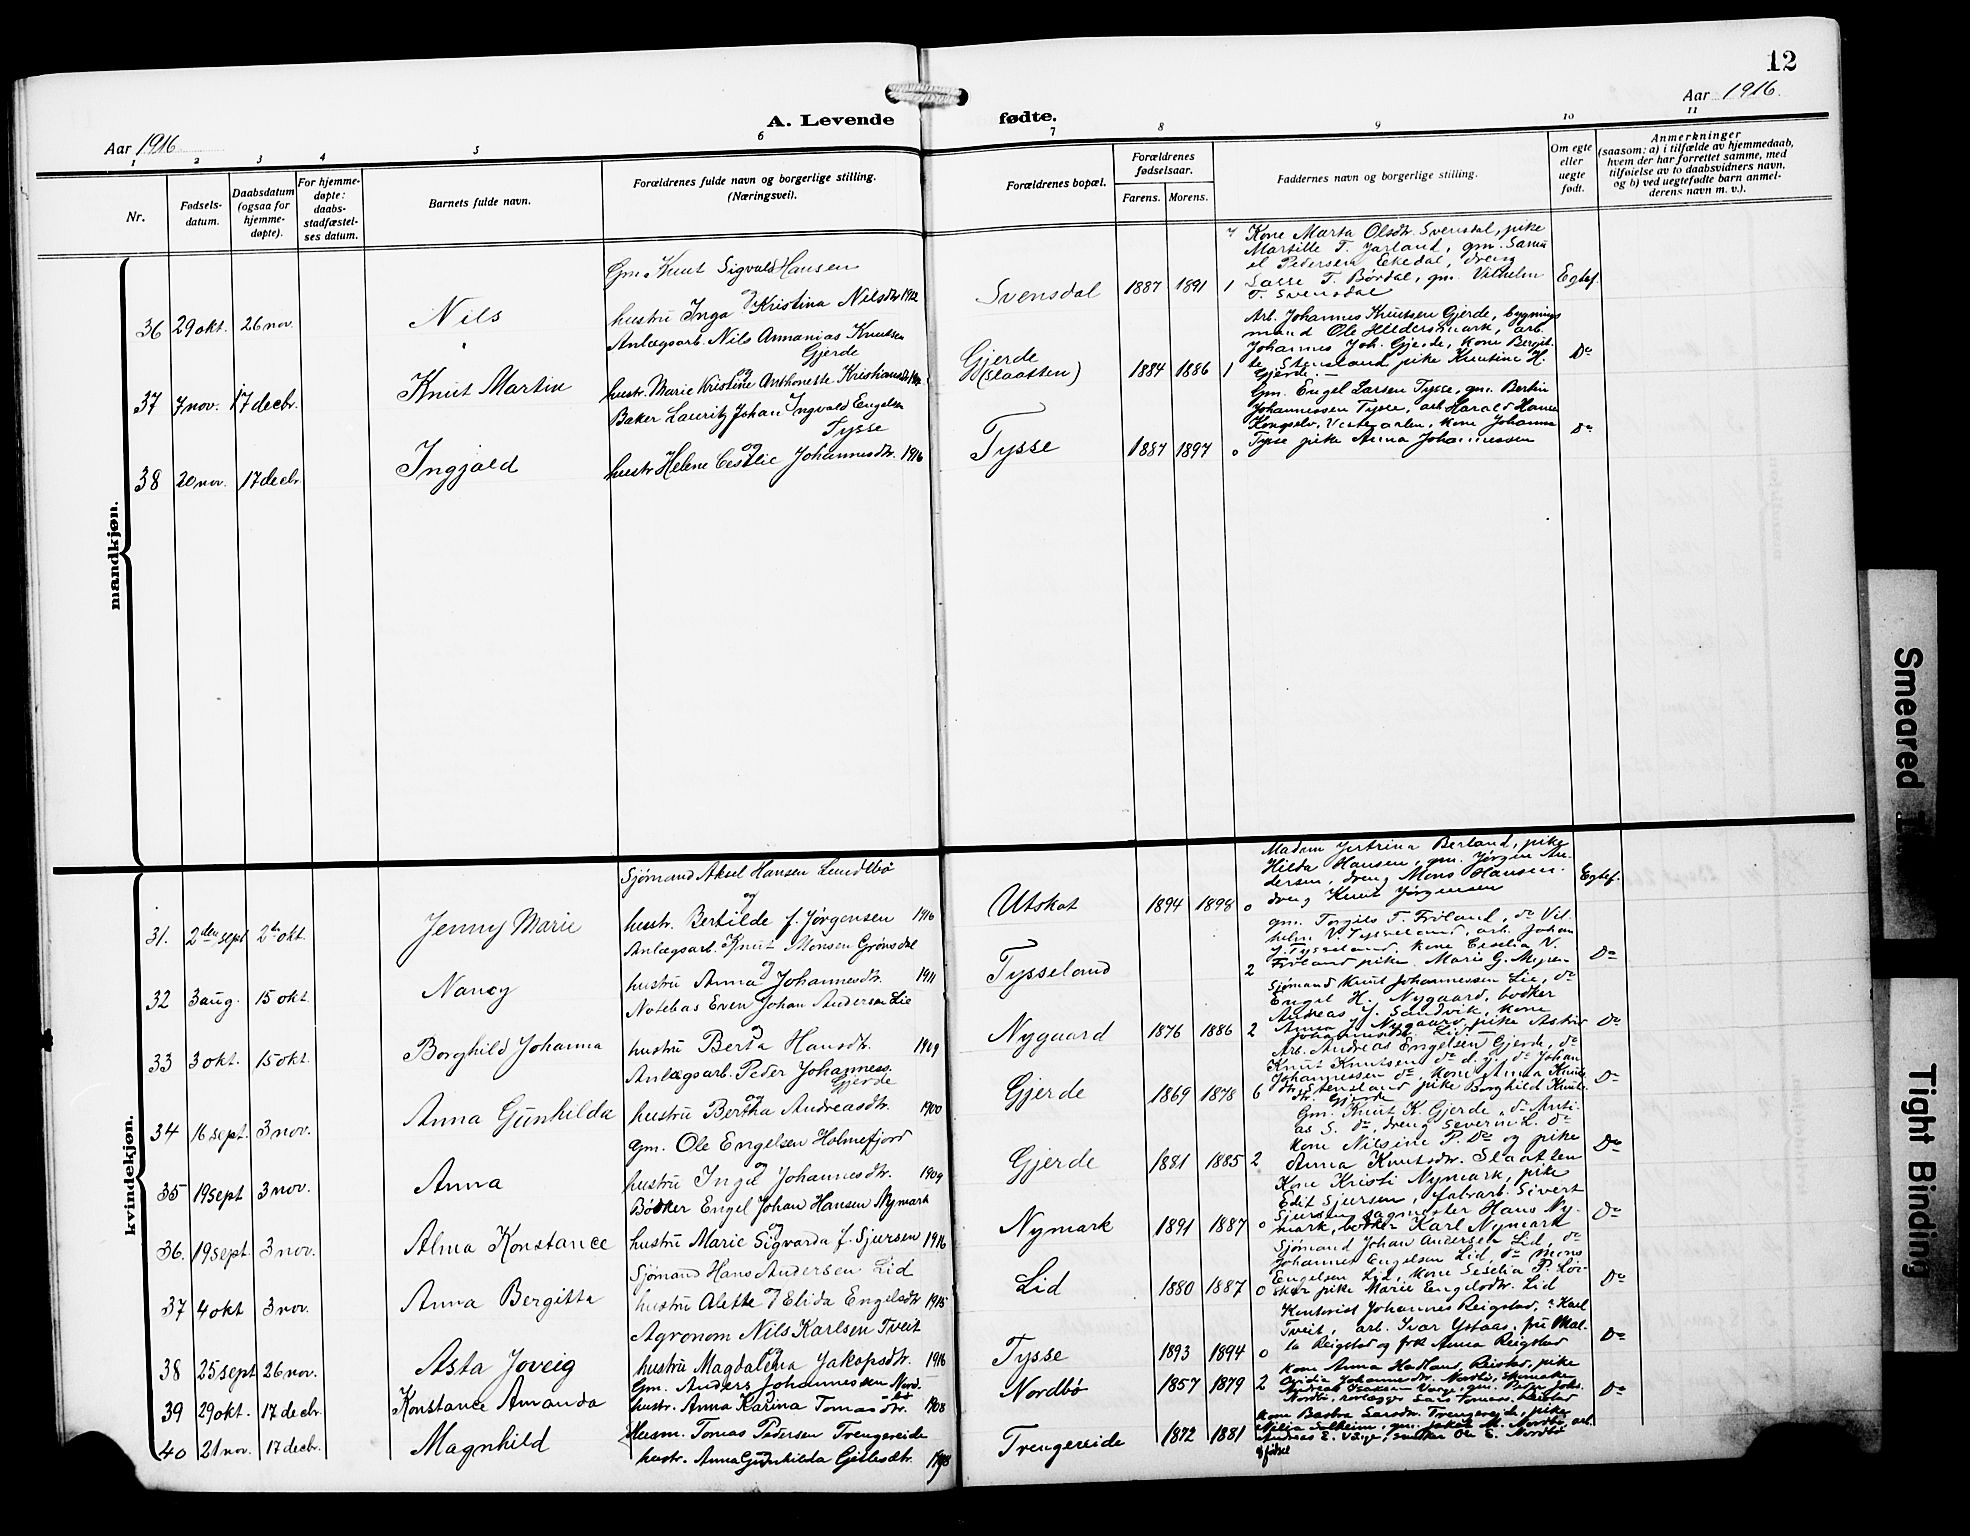 12
Aar 1916
A. Levende fødte.
Aar 1916.
1 2 3 4 5 6 7 8 9 10 11
Nr.
Fødsels-
datum.
Daabsdatum
(ogsaa for
hjemme-
døpte).
For hjemme-
døpte:
daabs-
stadfæstel-
ses datum.
Barnets fulde navn.
Forældrenes fulde navn og borgerlige stilling.
(Næringsvei).
Forældrenes bopæl.
Forældrenes
fødselsaar.
Farens. Morens.
Faddernes navn og borgerlige stilling.
Om egte
eller
uegte
født.
Anmerkninger
(saasom: a) i tilfælde av hjemmedaab,
hvem der har forrettet samme, med
tilføielse av to daabsvidners navn,
og b) ved uegtefødte barn anmel-
derens navn m. v.).
mandkjøn.
36 29 okt. 26 nov. Nils
Gm. Knut Sigvald Hansen
og
hustru Inga Kristina Nilsdtr 1912
Svensdal 1887 1891 1
Kone Marta Olsdtr. Svensdal, pike
Martille T. Jarland, gm. Samu
el Pedersen Ekedal, dreng
Lasse T. Børdal, gm. Vilhelm
T. Svensdal
Egtef.
37 7 nov. 17 decbr. Knut Martin
Anlægsarb. Nils Annanias Knutsen
Gjerde
og
hustr. Marie Kristine Anthonette Kristiansdtr
Gjerde
(Slaatten) 1884 1886 1
Arb. Johannes Knutsen Gjerde, bygnings
mand Ole Heldersmark, arb.
Johannes Joh. Gjerde, kone Bergit-
te Stensland pike Knutine H.
Gjerde. —
Do
38 20 nov. 17 decbr. Ingjald
Baker Lauritz Johan Ingvald Engelsen
Tysse
og
hustr. Helene Cesilie Johannesdtr. 1916
Tysse 1887 1897 0
Gm. Engel Larsen Tysse, gm. Bertin
Johannessen Tysse, arb. Harald Hansen
Kongselv, kone Johanna
Tysse pike Anna Johannessen
Do
kvindekjøn.
31. 2den sept 2de okt. Jenny Marie
Sjømand Aksel Hansen Lundebø
og
hustr. Bertilde f. Jørgensen 1916
Utskot 1894 1898 0
Madam Jertrina Berland, pike
Hilda Hansen, gm. Jørgen An-
dersen, dreng Mons Hansen.
dreng Knut Jørgensen
Egtef.
32 3 aug. 15 okt. Nancy
Anlægsarb. Knut Monsen Grønsdal
og
hustru Anna Johannesdtr. 1911
Tysseland 2
gm. Torgils T. Frøland, do Vil-
helm V. Tysseland, arb. Johan
J. Tysseland, kone Cecelia V.
Frøland pike Marie G.
Do
33 3 okt. 15 okt. Borghild Johanna
Notebas Even Johan Andersen Lie
og
hustru Berta Hansdtr. 1909
Nygaard 1876 1886 2
Sjømand Knut Johannessen Lie, do
Engel H. Nygaard, bødker
Andreas J. Sandvik, kone
Anna J. Nygaard, pike Astrid
Johannesdtr. Lid. —
Do
34 16 sept. 3 nov. Anna Gunhilda
Anlægsarb. Peder Johanness.
Gjerde
og
hustru Bertha Andreasdtr. 1900
Gjerde 1869 1878 6
Arb. Andreas Engelsen Gjerde, do
Knut Knutsen do d. y. do Johan
Johannessen do kone Anna Knuts
dtr. Stensland pike Borghild Knuts
dtr. Gjerde
Do
35 19 sept 3 nov. Anna
Gm. Ole Engelsen Holmefjord
og
hustru Inga Johannesdtr. 1909
Gjerde 1881 1885 2
Gm. Knut K. Gjerde, do Anti-
as S. do, dreng Severin L. do
kone Nilsine P. Do og pike
Anna Knutsdtr. Slaatten
Do
36. 19 sept 3 nov. Alma Konstance
Bødker Engel Johan Hansen Nymark
og
hustru Marie Sigvarda f. Sjursen 1916
Nymark 1891 1887 0
Kone Kristi Nymark, pike
Edit Sjursen, fabrarb. Sivert
Sjursen, sagmester Hans Ny-
mark, bødker Karl Nymark
Do
37 4 okt 3 nov. Anna Bergitta
Sjømand Hans Andersen Lid
og
hustru Alette Elida Engelsdtr 1915
Lid 1880 1887 0
Sjømand Johan Andersen Lid, do
Johannes Engelsen Lid, do Mons
Engelsen Lid, kone Seselia P. Løi-
skar pike Marie Engelsdtr. Lid
Do
38 25 sept 26 nov. Asta Joveig
Agronom Nils Karlsen Tveit
og
hustru Magdalena Jakopsdtr. 1916
Tysse 1893 1894 0
Kontorist Johannes Reigstad, Karl
Tveit, arb. Ivar Ystaas, fru Mal-
la Reigstad og frk Anna Reigstad
Do
39 29 okt. 17 decbr. Konstance Amanda
Gm. Anders Johannessen Nord-
bø
hustr. Anna Karina Tomasdtr. 1908
Nordbø 1857 1879 2
Kone Anna Hadland, Reistad, pike
Ovidia Johannesdtr. Nordbø, skomaker
Andreas Isaksen Vaage, gm. Peder Johs.
Do
40 21 nov. 17 decbr. Magnhild
Husm. Tomas Pedersen Trengereide
og
hustr. Anna Gunhilda Gitlesdtr. 1908
Trengereide 1872 1881 9 fødsel
Kone Barbra Larsdtr. Trengereide, pike
Milla Solheim, gm. Jakob M. Nordbø, arb.
Andreas E. Vaage, snekker Ole E. Nordbø
Smeared
Tight Binding